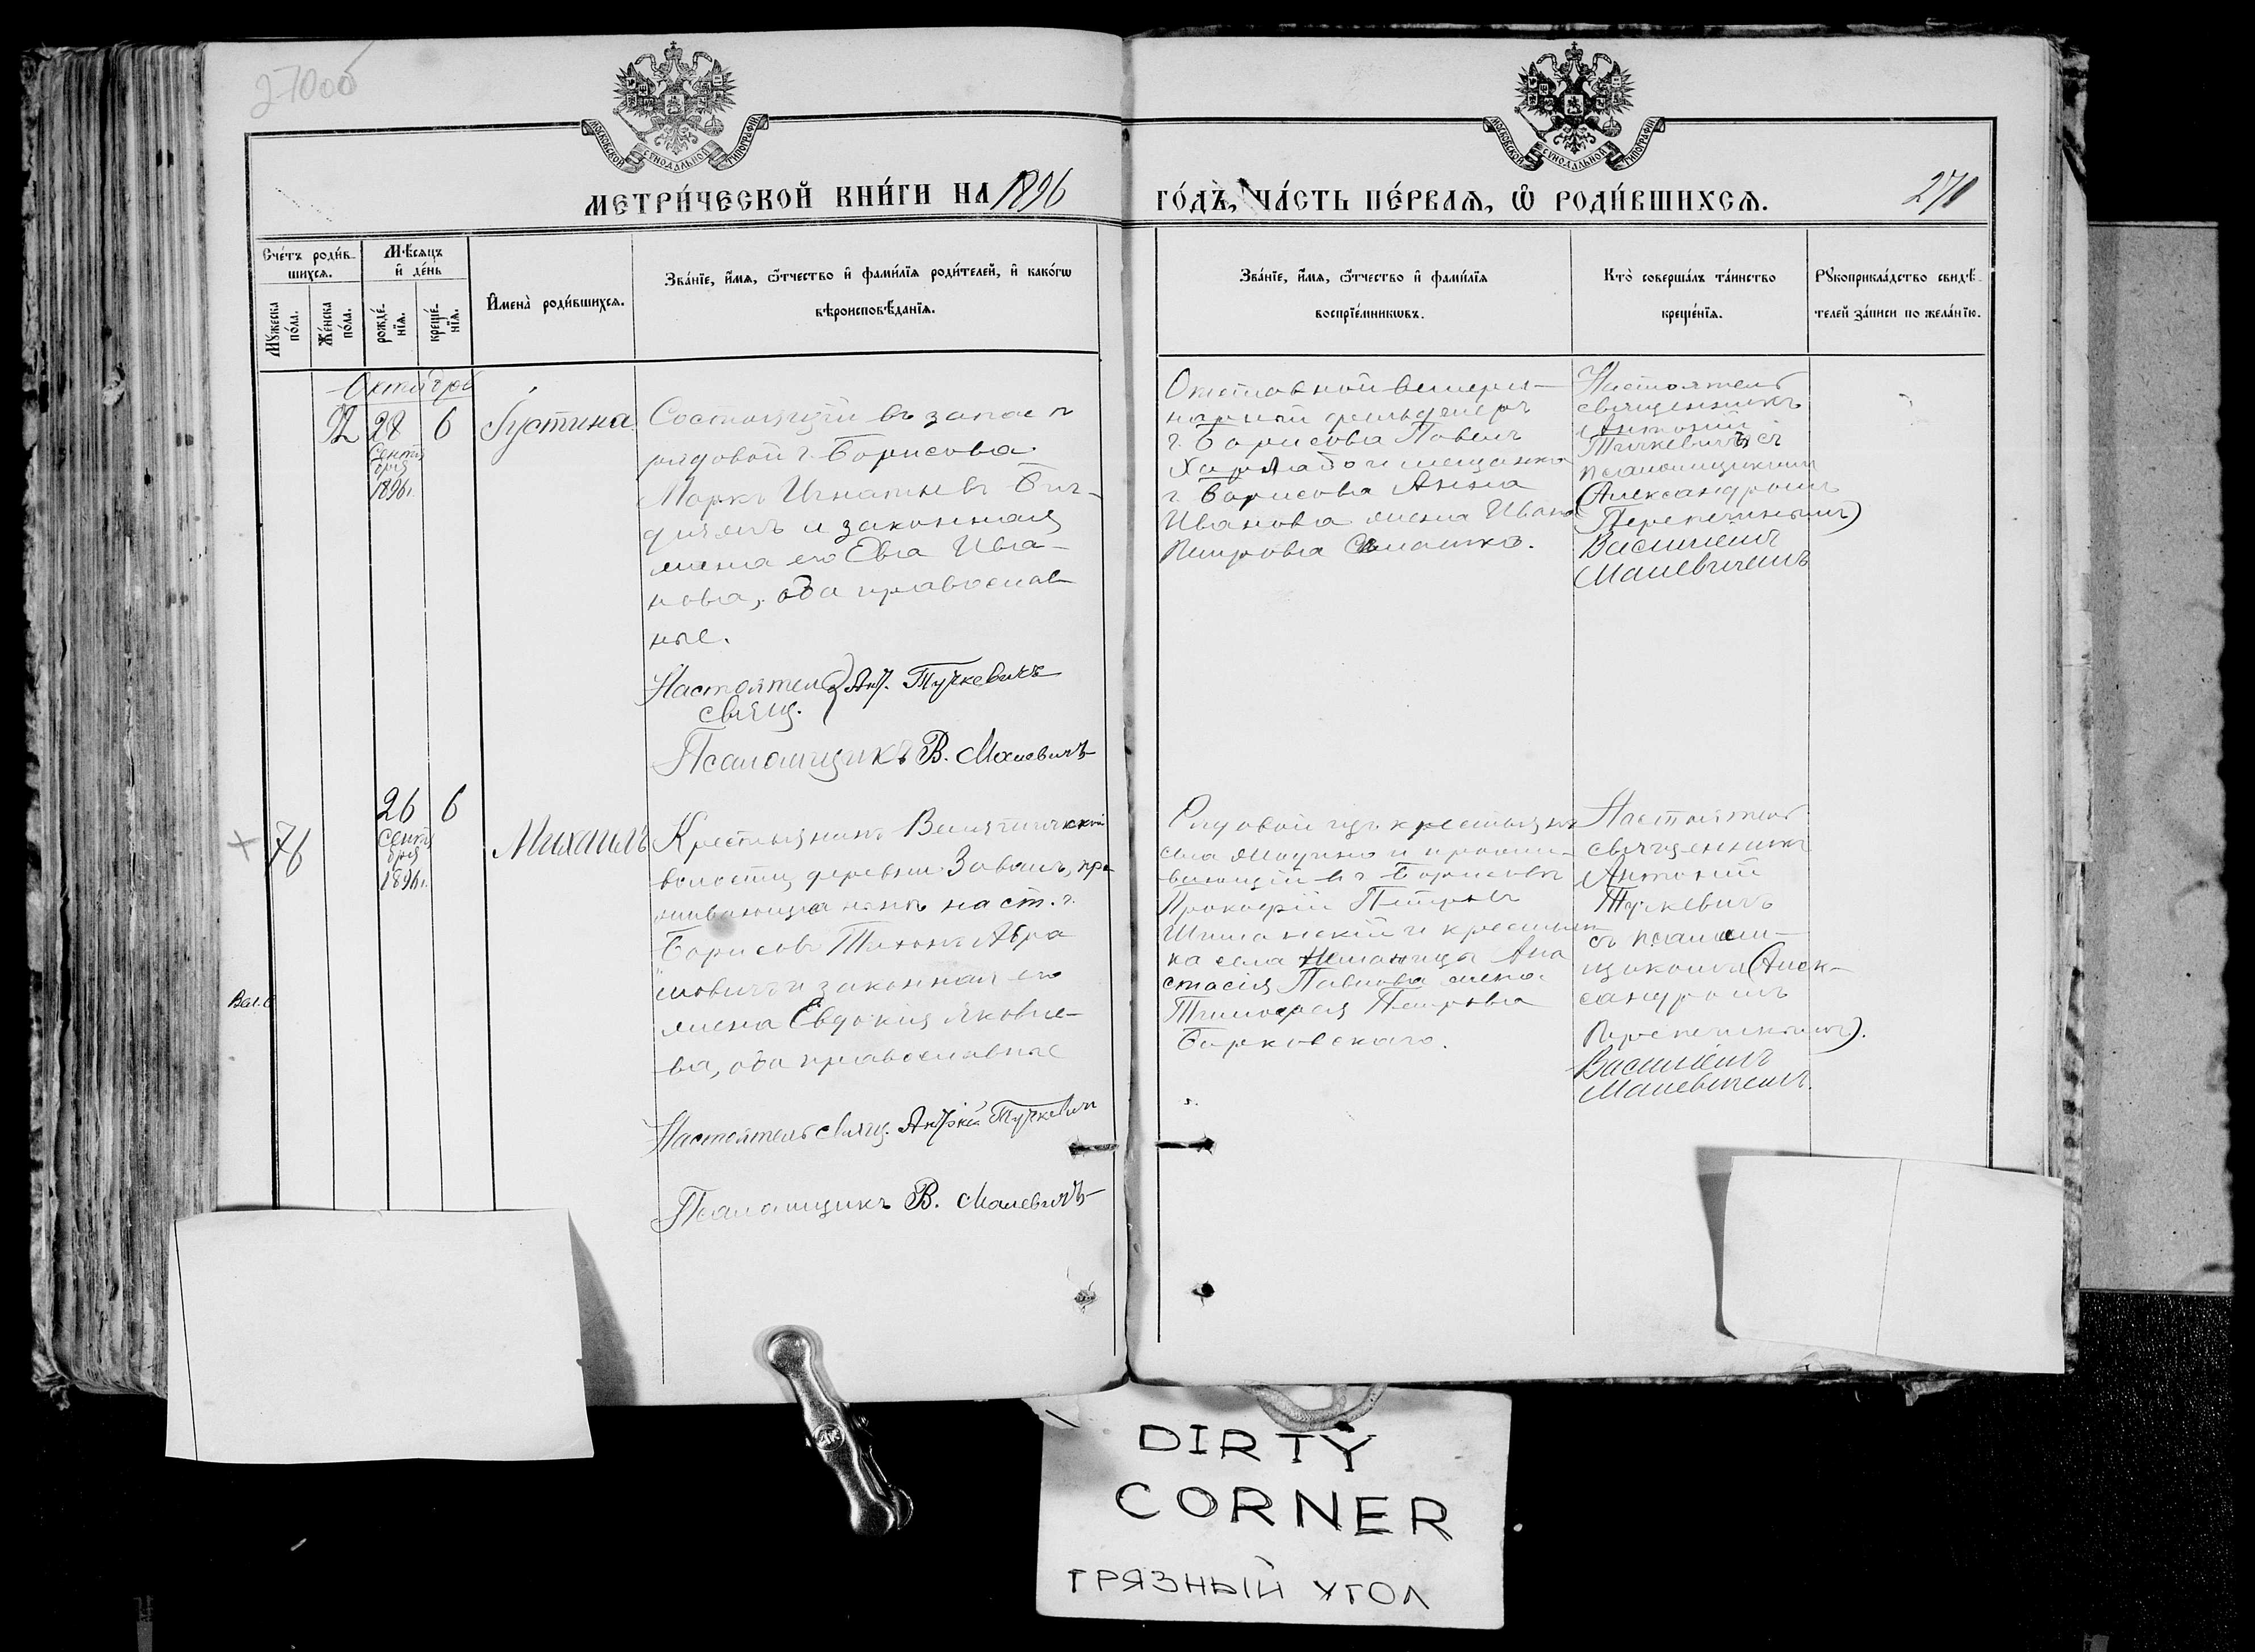 270об
МОСКОВСКОЙ СѴНОДАЛЬНОЙ ТИПОГРАФІИ
МОСКОВСКОЙ СѴНОДАЛЬНОЙ ТИПОГРАФІИ
МЕТРИ́ЧЕСКОЙ КНИ́ГИ НА 1896
ГО́ДЪ, ЧА́СТЬ ПЕ́РВАѦ, Ѡ҆ РОДИ́ВШИХСѦ.
270
Сче́тъ роди́в-
шихся.
Мꙋ́жеска
по́ла.
Же́нска
по́ла.
Мѣ́сяцъ
и҆ де́нь
рожде́-
нїя.
креще́-
нїя.
И҆мена̀ роди́вшихся.
Зва́нїе, и҆́мя, ѻ҆́тчество и҆ фами́лїя роди́телей, и҆ како́гѡ
вѣроисповѣ́данїя.
Зва́нїе, и҆́мя, ѻ҆́тчество и҆ фами́лїя
воспрїе́мникѡвъ.
Кто̀ соверша́лъ та́инство
креще́нїя.
Рꙋкоприкла́дство свидѣ́-
телей за́писи по жела́нїю.
Октября
92
28
6
Сентя
бря
1896г.
Іустина
Состоящій въ запасѣ
рядовой г. Борисова
Маркъ Игнатьевъ
и законная
жена его Ева Ива-
нова, оба православ
ные.
Настоятель Ант. Тучкевичъ
свящ.
Псаломщикъ В. Малевичъ
Отставной ветери-
нарный фельдшеръ
г. Борисова Павелъ
и мещанка
г. Борисова Анна
Иванова жена Ивана
Петрова
Настоятель
священникъ
Антоній
Тучкевичъ съ
псаломщикомъ
(Александромъ
Перепечинымъ)
Василіемъ
Малевичемъ
76
26
6
Сентя
бря
1896г.
Михаилъ
Крестьянинъ Велятичской
волости, деревни Завалъ, про
живающій нынѣ на ст. г.
Борисовъ Тихонъ Абра
мовичъ и законная его
жена Евдокія Яковле-
ва, оба православные
Настоятель свящ. Антоній Тучкевичъ
Псаломщикъ В. Малевичъ
Рядовой изъ крестьянъ
села и прожи-
вающій въ г. Борисовѣ
Прокофій Петровъ
и крестьян
ка села Ана
стасія Павлова жена
Тимофея Петрова
Борковскаго.
Настоятель
священникъ
Антоній
Тучкевичъ
съ псалом-
щикомъ (Алек-
сандромъ
Перепечинымъ).
Василіемъ
Малевичемъ.
DIRTY
CORNER
ГРЯЗНЫЙ УГОЛ